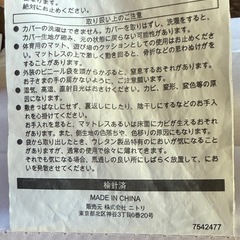 絶対におやめください。
取り扱い上のご注意
カバーの洗濯はできません。カバーを取りはずし、洗濯をすると、
カバー生地が縮み、元の状態に戻らない可能性があります。
体育用のマット、遊び場のクッションとしての使用はおやめくだ
さい。マットレスの上で激しく動きまわると、骨折など思わぬけがを
することがあります。
外装のビニール袋を頭からかぶると、窒息するおそれがあります。
お子さまの手の届かないように、ご注意願います。
湿気、高温、直射日光はおさけください。カビ、変形、変色等の原
因になります。
敷きっぱなしにせず、立てかけたり、陰干しするなどのお手入れ
を心掛けてください。
お手入れを怠りますと、マットレスあるいは床面にカビが生えるおそれ
があります。また、側生地の色落ちや、色移りの原因にもなります。
袋から取り出したとき、ウレタン製品特有のにおいが気になる
ことがあります。その場合、風通しの良い所にしばらく置いて、にお
いを発散させてください。
検針済
MADE IN CHINA
販売元 株式会社 ニトリ
東京都北区神谷3丁目6番20号
7542477